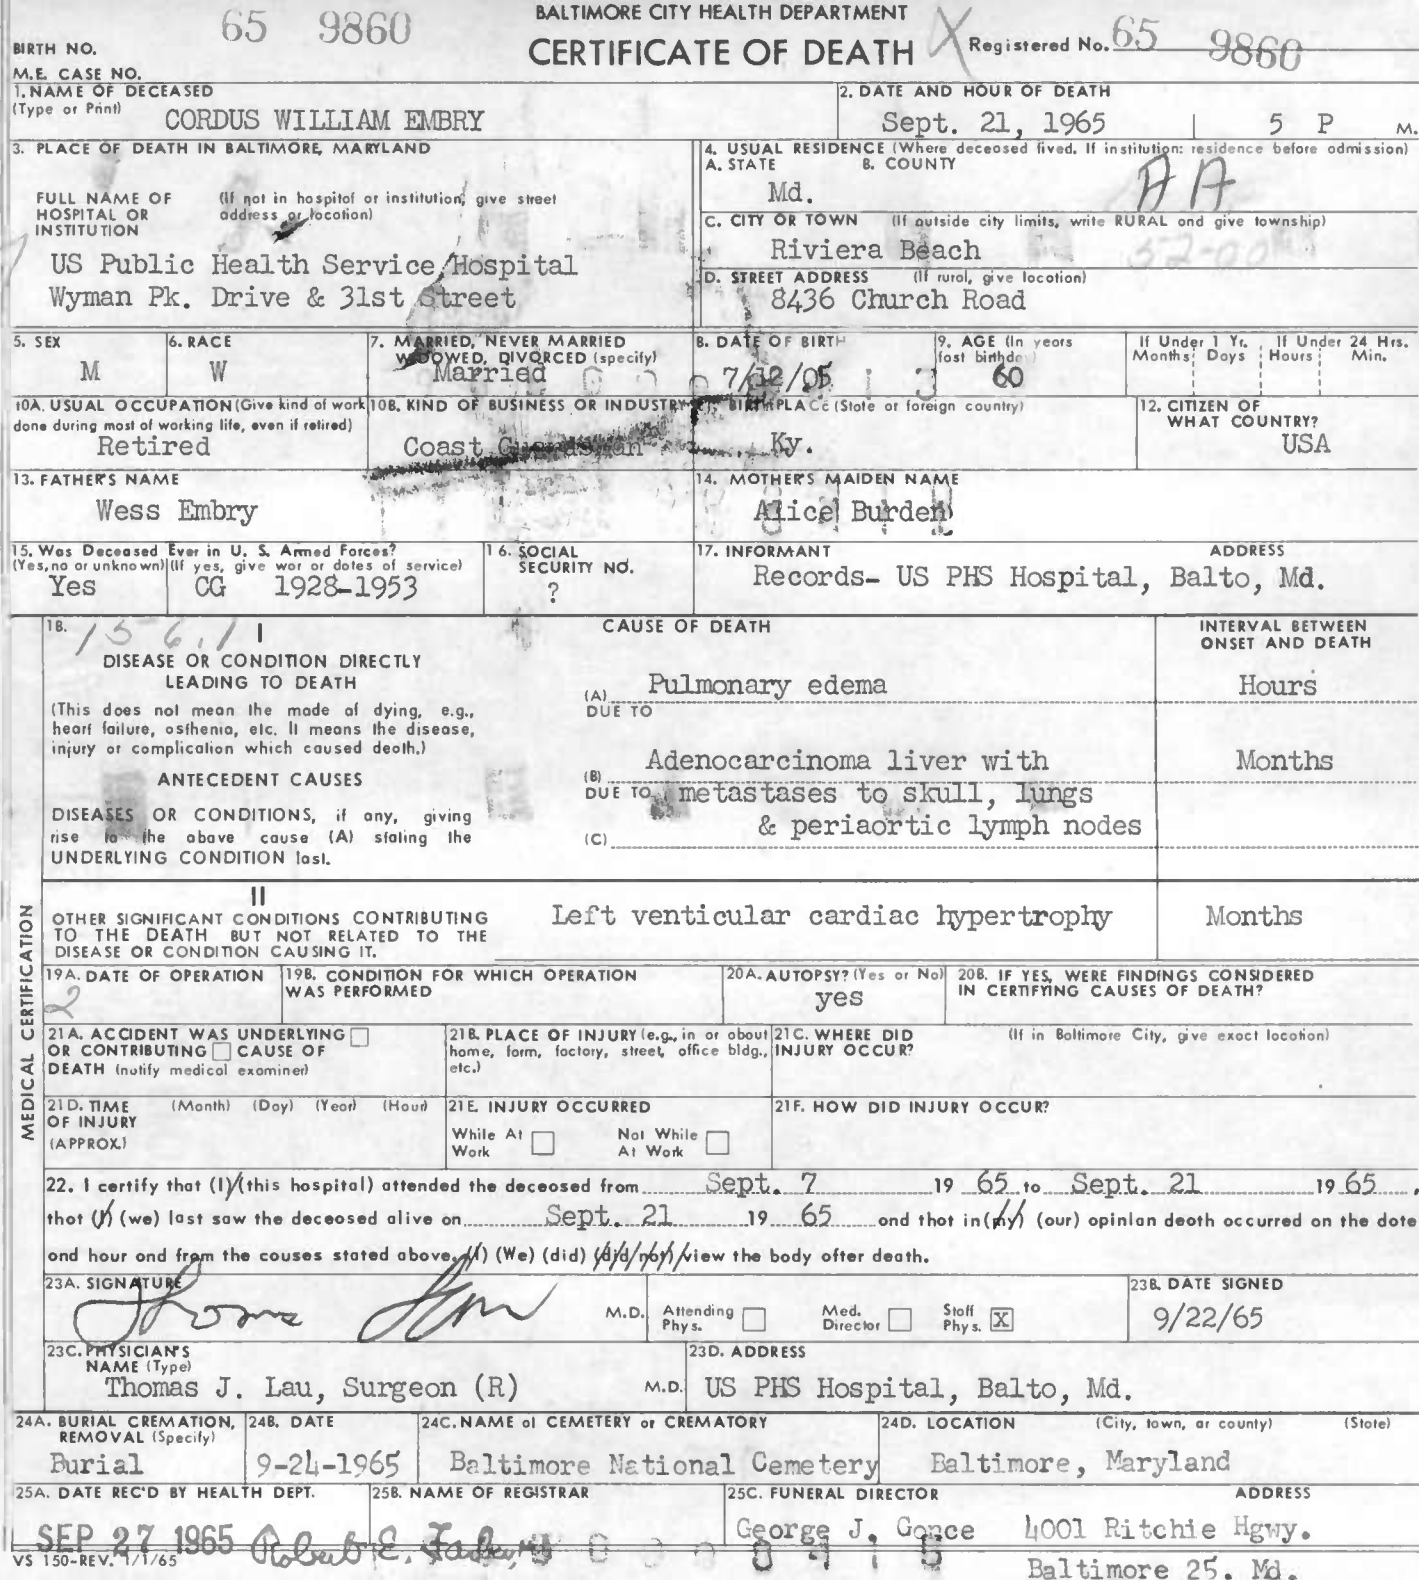 65 9860
BALTIMORE CITY HEALTH DEPARTMENT
CERTIFICATE OF DEATH
X Registered No. 65 9860
BIRTH NO.
M.E. CASE NO.
1. NAME OF DECEASED
(Type or Print)
CORDUS WILLIAM EMBRY
2. DATE AND HOUR OF DEATH
Sept. 21, 1965 5 P M.
3. PLACE OF DEATH IN BALTIMORE, MARYLAND
FULL NAME OF HOSPITAL OR INSTITUTION
(If not in hospital or institution, give street address or location)
US Public Health Service/Hospital
Wyman Pk. Drive & 31st Street
4. USUAL RESIDENCE (Where deceased lived. If institution: residence before admission)
A. STATE B. COUNTY
Md. AA
C. CITY OR TOWN (If outside city limits, write RURAL and give township)
Riviera Beach 52-00
D. STREET ADDRESS (If rural, give location)
8436 Church Road
5. SEX
M
6. RACE
W
7. MARRIED, NEVER MARRIED
WIDOWED, DIVORCED (specify)
Married
8. DATE OF BIRTH
7/12/05
9. AGE (In years
last birthday)
60
If Under 1 Yr. If Under 24 Hrs.
Months Days Hours Min.
10A. USUAL OCCUPATION (Give kind of work
done during most of working life, even if retired)
Retired
10B. KIND OF BUSINESS OR INDUSTRY
Coast Guardsman
11. BIRTHPLACE (State or foreign country)
Ky.
12. CITIZEN OF
WHAT COUNTRY?
USA
13. FATHER'S NAME
Wess Embry
14. MOTHER'S MAIDEN NAME
Alice Burden
15. Was Deceased Ever in U. S. Armed Forces?
(Yes, no or unknown) (If yes, give war or dates of service)
Yes CG 1928-1953
16. SOCIAL
SECURITY NO.
?
17. INFORMANT ADDRESS
Records- US PHS Hospital, Balto, Md.
18. 156.1 I
CAUSE OF DEATH
INTERVAL BETWEEN
ONSET AND DEATH
DISEASE OR CONDITION DIRECTLY
LEADING TO DEATH
(This does not mean the mode of dying, e.g.,
heart failure, asthenia, etc. It means the disease,
injury or complication which caused death.)
ANTECEDENT CAUSES
DISEASES OR CONDITIONS, if any, giving
rise to the above cause (A) stating the
UNDERLYING CONDITION last.
(A) Pulmonary edema Hours
DUE TO
(B) Adenocarcinoma liver with Months
DUE TO metastases to skull, lungs
(C) & periaortic lymph nodes
MEDICAL CERTIFICATION
II
OTHER SIGNIFICANT CONDITIONS CONTRIBUTING
TO THE DEATH BUT NOT RELATED TO THE
DISEASE OR CONDITION CAUSING IT.
Left venticular cardiac hypertrophy Months
19A. DATE OF OPERATION
2
19B. CONDITION FOR WHICH OPERATION
WAS PERFORMED
20A. AUTOPSY? (Yes or No)
yes
20B. IF YES, WERE FINDINGS CONSIDERED
IN CERTIFYING CAUSES OF DEATH?
21A. ACCIDENT WAS UNDERLYING
OR CONTRIBUTING CAUSE OF
DEATH (notify medical examiner)
21B. PLACE OF INJURY (e.g., in or about
home, farm, factory, street, office bldg.,
etc.)
21C. WHERE DID (If in Baltimore City, give exact location)
INJURY OCCUR?
21D. TIME (Month) (Day) (Year) (Hour)
OF INJURY
(APPROX.)
21E. INJURY OCCURRED
While At Work Not While At Work
21F. HOW DID INJURY OCCUR?
22. I certify that (I)/(this hospital) attended the deceased from Sept. 7 19 65 to Sept. 21 19 65,
that (I) (we) last saw the deceased alive on Sept. 21 19 65 and that in (my) (our) opinion death occurred on the date
and hour and from the causes stated above. (I) (We) (did) (did not) view the body after death.
23A. SIGNATURE
M.D. Attending Phys. Med. Director Staff Phys. X
23B. DATE SIGNED
9/22/65
23C. PHYSICIAN'S
NAME (Type)
Thomas J. Lau, Surgeon (R) M.D.
23D. ADDRESS
US PHS Hospital, Balto, Md.
24A. BURIAL CREMATION,
REMOVAL (Specify)
Burial
24B. DATE
9-24-1965
24C. NAME of CEMETERY or CREMATORY
Baltimore National Cemetery
24D. LOCATION (City, town, or county) (State)
Baltimore, Maryland
25A. DATE REC'D BY HEALTH DEPT.
SEP 27 1965
25B. NAME OF REGISTRAR
Robert E. Farber
25C. FUNERAL DIRECTOR ADDRESS
George J. Gonce 4001 Ritchie Hgwy.
Baltimore 25. Md.
VS 150-REV. 1/1/65